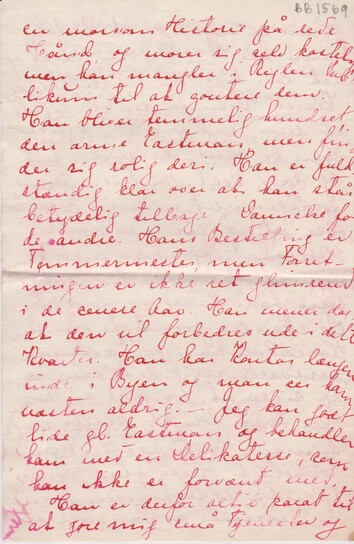 BB1569
en morsom Historie på rede
Hånd og morer sig selv kosteligt
men han mangler i Reglen Pub
likum til at goutere dem.
Han bliver temmelig hundset
den arme Eastman, men fin
der sig rolig deri. Han er fuld
stændig klar over at han står
betydelig tilbage i Dannelse for
de andre. Hans Bestilling er
Tømmermester, men Forret-
ningen er ikke ret glimrend
i de senere Aar. Han mener dog
at den vil forbedres ude i dette
Kvarter. Han har Kontor længere
inde i Byen og man ser ham
næsten aldrig. — Jeg kan godt
lide gl. Eastman og behandler
ham med en Delikatesse, som
han ikke er forvænt med.
Han er derfor altid parat til
at gøre mig små Tjenester og